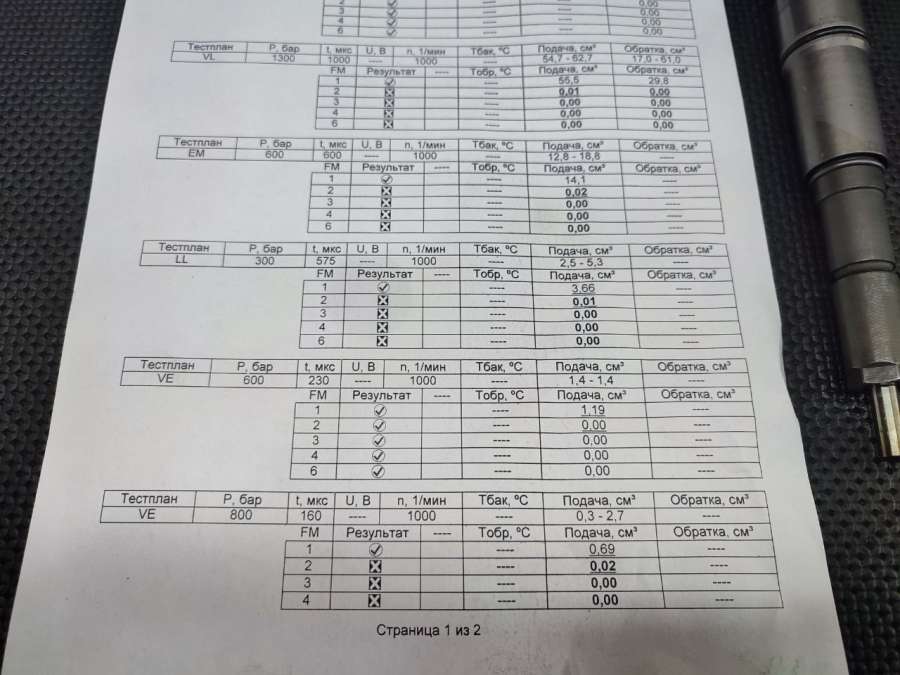 2 ---- ---- 0,00
3 ---- ---- 0,00
4 ---- ---- 0,00
6 ---- ---- 0,00
Тестплан Р, бар t, мкс U, В n, 1/мин Тбак, ºС Подача, см³ Обратка, см³
VL 1300 1000 ---- 1000 ---- 54,7 - 62,7 17,0 - 61,0
FM Результат ---- Тобр, ºС Подача, см³ Обратка, см³
1 ---- 55,5 29,8
2 ---- 0,01 0,00
3 ---- 0,00 0,00
4 ---- 0,00 0,00
6 ---- 0,00 0,00
Тестплан Р, бар t, мкс U, В n, 1/мин Тбак, ºС Подача, см³ Обратка, см³
EM 600 600 ---- 1000 ---- 12,8 - 18,8 ----
FM Результат ---- Тобр, ºС Подача, см³ Обратка, см³
1 ---- 14,1 ----
2 ---- 0,02 ----
3 ---- 0,00 ----
4 ---- 0,00 ----
6 ---- 0,00 ----
Тестплан Р, бар t, мкс U, В n, 1/мин Тбак, ºС Подача, см³ Обратка, см³
LL 300 575 ---- 1000 ---- 2,5 - 5,3 ----
FM Результат ---- Тобр, ºС Подача, см³ Обратка, см³
1 ---- 3,66 ----
2 ---- 0,01 ----
3 ---- 0,00 ----
4 ---- 0,00 ----
6 ---- 0,00 ----
Тестплан Р, бар t, мкс U, В n, 1/мин Тбак, ºС Подача, см³ Обратка, см³
VE 600 230 ---- 1000 ---- 1,4 - 1,4 ----
FM Результат ---- Тобр, ºС Подача, см³ Обратка, см³
1 ---- 1,19 ----
2 ---- 0,00 ----
3 ---- 0,00 ----
4 ---- 0,00 ----
6 ---- 0,00 ----
Тестплан Р, бар t, мкс U, В n, 1/мин Тбак, ºС Подача, см³ Обратка, см³
VE 800 160 ---- 1000 ---- 0,3 - 2,7 ----
FM Результат ---- Тобр, ºС Подача, см³ Обратка, см³
1 ---- 0,69 ----
2 ---- 0,02 ----
3 ---- 0,00 ----
4 ---- 0,00 ----
Страница 1 из 2